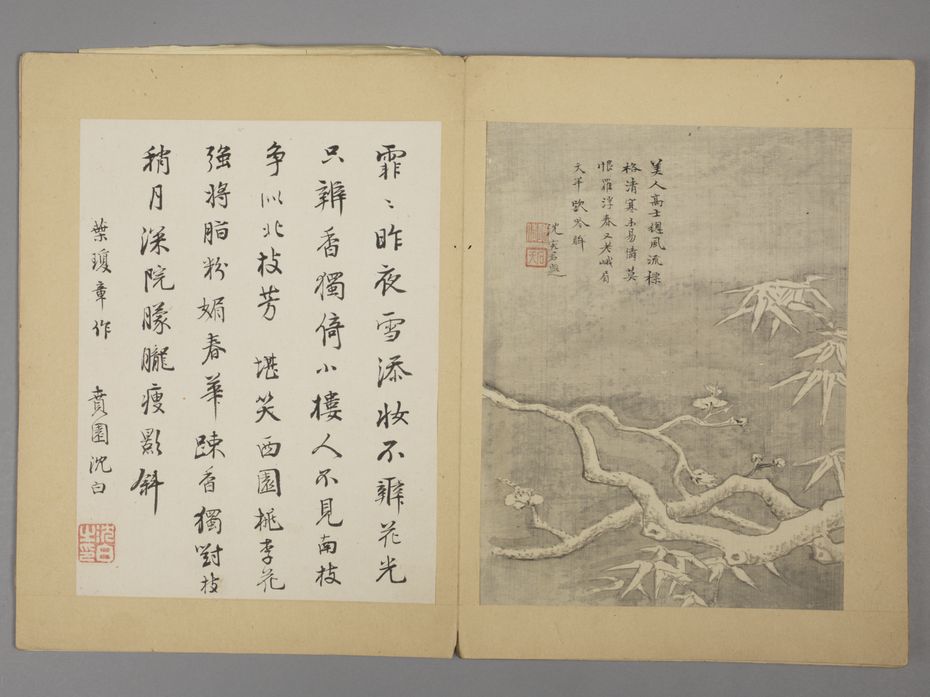 美人高士總風流標
格清寒未易儔莫
恨羅浮春又老峨眉
天半
霏〻昨夜雪添妝不辨花光
只辨香獨倚小樓人不見南枝
争似北枝芳 堪笑西園桃李花
強將脂粉媚春華踈香獨對枝
稍月深院朦朧瘦影斜
葉瓊章作 賁園沈白
沈白之印